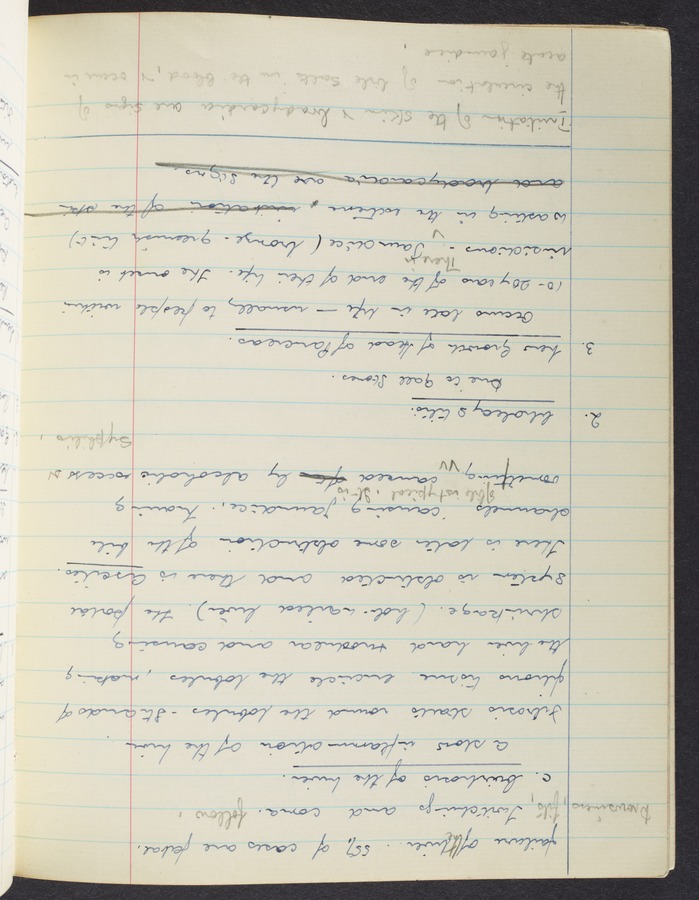 failure of the liver. 55% of cases are fatal.
Drowsiness, fits, Twitchings and coma. follow.
C. Cirrhosis of the liver.
A slow inflammation of the liver.
Fibrosis starts round the lobules - strands of
fibrous tissue encircle the lobules, making
the liver hard nodular and causing
shrinkage. (hob-nailed liver). The portal
system is obstructed and there is ascites.
there is later some obstruction of the bile
channels causing jaundice. Training
after is typical. It is
vomiting caused by alcoholic excess or
Syphilis.
2. Cholecystitis.
Due to gall stones.
3. New growth of head of Pancreas.
Occurs late in life - usually to people within
10-20 years of the end of their life. The onset is
There is
insidious - Jaundice (bronze-greenish tint)
wasting in the extreme. irritation of the skin
and bradycardia are the signs.
Irritation of the skin & bradycardia are signs of
the circulation of bile salts in the blood, & occur in
acute jaundice.